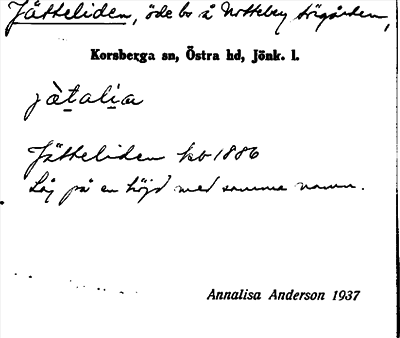 Jätteliden, öde bs å Norreby Storgården,
Korsberga sn, Östra hd, Jönk. l.
jàtalia
Jätteliden kb 1886
Låg på en höjd med samma namn.
Annalisa Anderson 1937